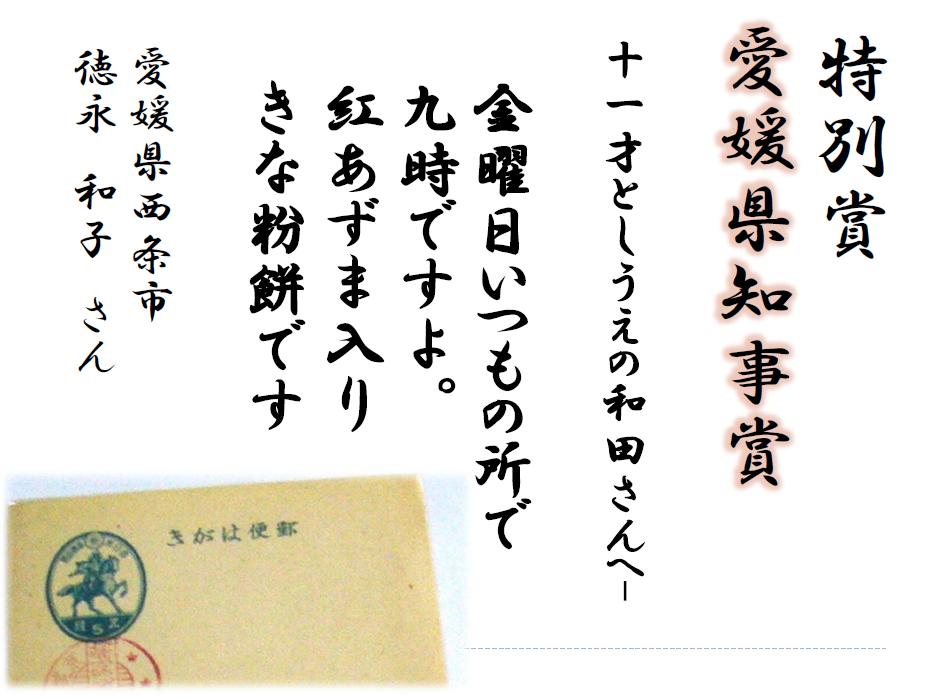 特別賞
愛媛県知事賞
十一才としうえの和田さんへー
金曜日いつもの所で
九時ですよ。
紅あずま入り
きな粉餅です
愛媛県西条市
徳永　和子　さん
きがは便郵
5